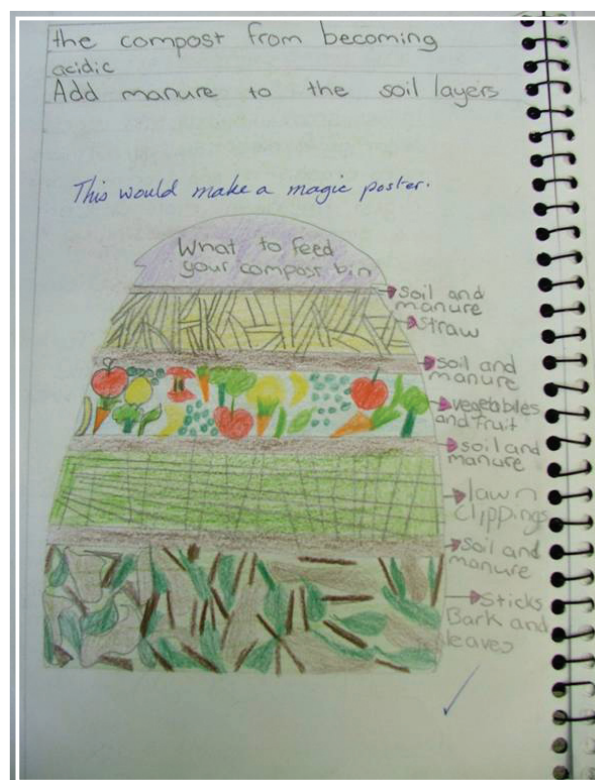 the compost from becoming
acidic
Add manure to the soil layers
This would make a magic poster.
What to feed
your compost bin
soil and
manure
straw
soil and
manure
vegetables
and fruit
soil and
manure
lawn
clippings
soil and
manure
Sticks
Bark and
leaves